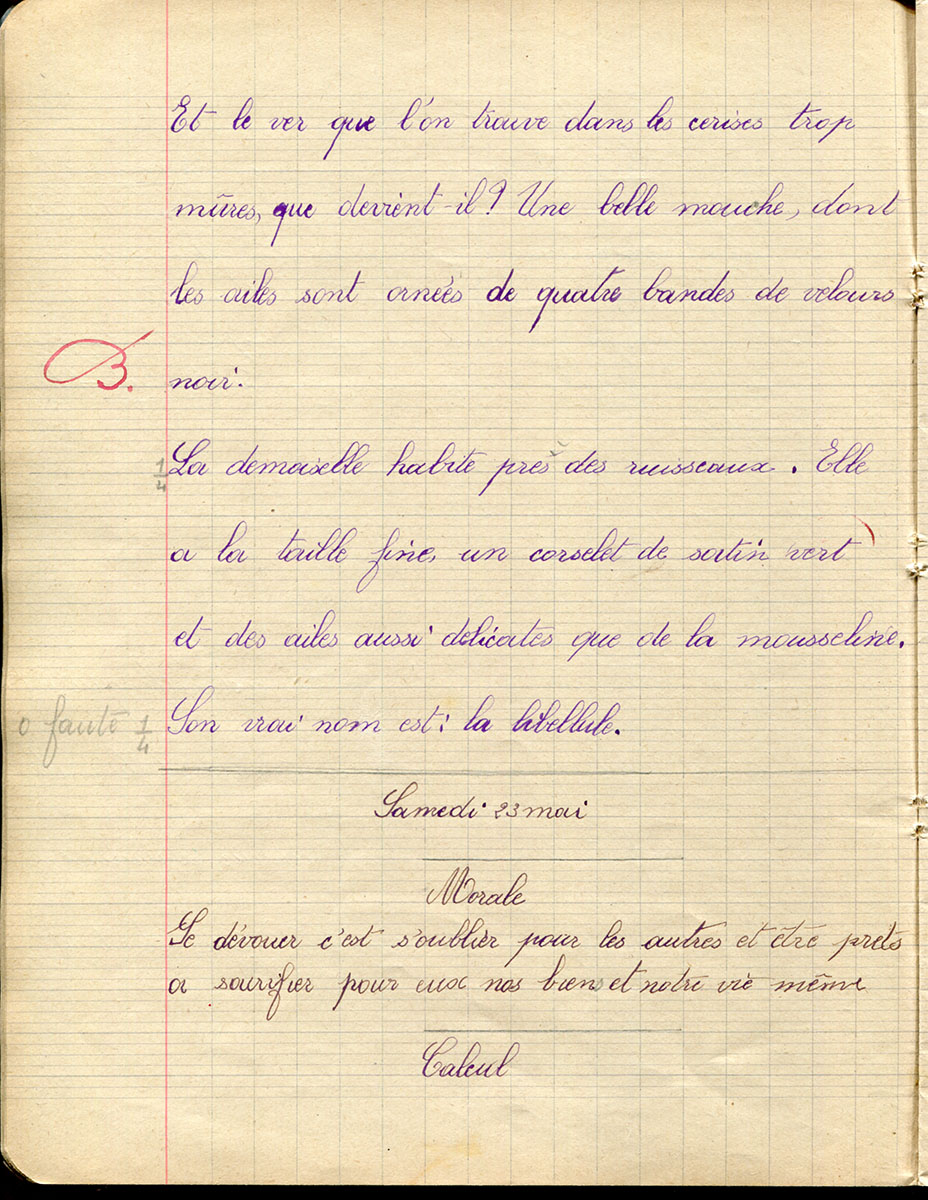 Et le ver que l'on trouve dans les cerises trop
mûres, que devient-il? Une belle mouche, dont
les ailes sont ornées de quatre bandes de velours
B. noir.
1/4 La demoiselle habite près des ruisseaux. Elle
a la taille fine, un corselet de satin vert
et des ailes aussi délicates que de la mousseline.
0 faute 1/4 Son vrai nom est: la libellule.
Samedi 23 mai
Morale
Se dévouer c'est s'oublier pour les autres et être prêts
a sacrifier pour eux nos biens et notre vie même
Calcul